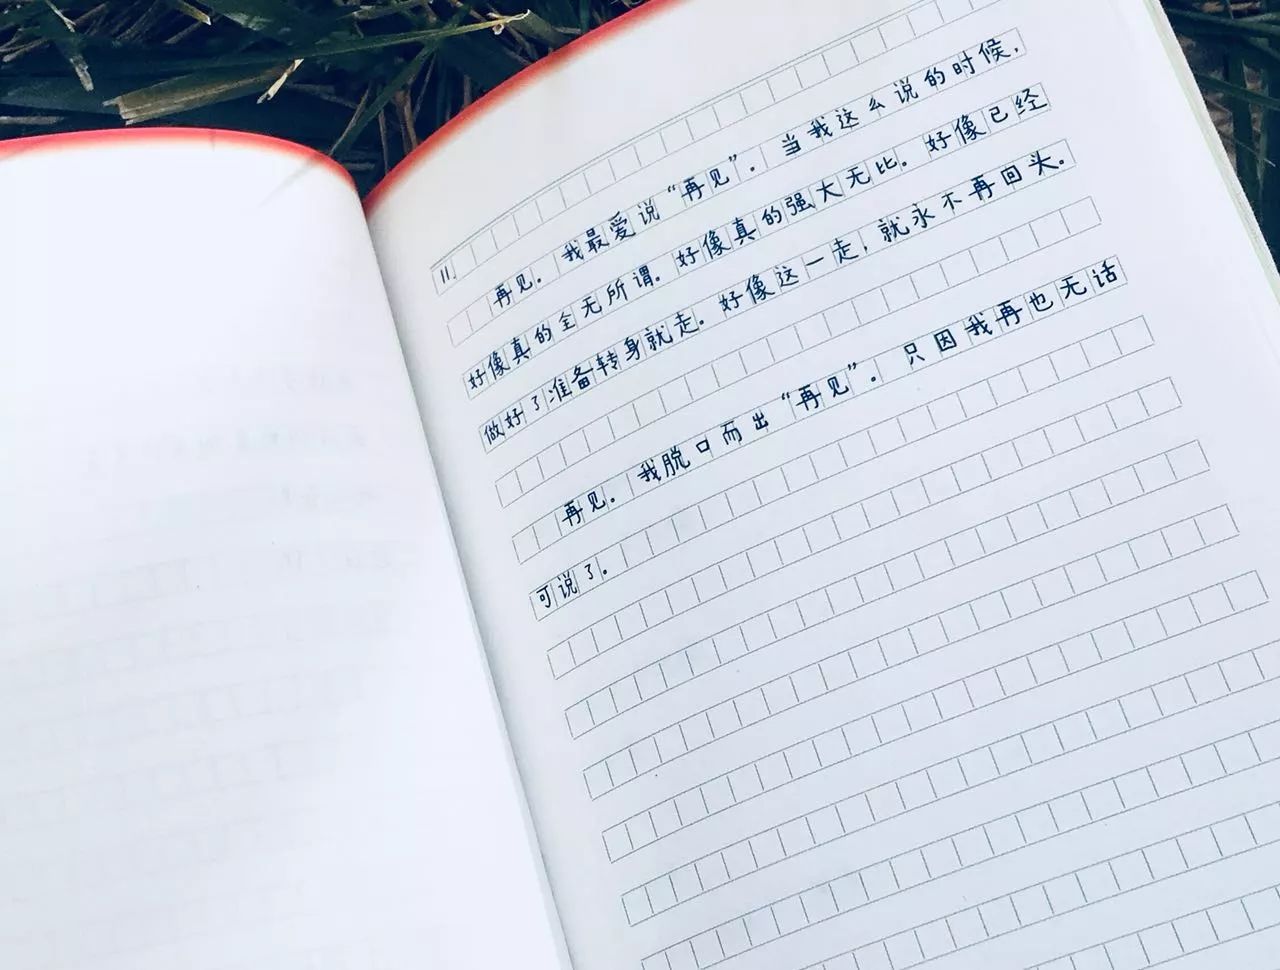 11.
再见。我最爱说“再见”。当我这么说的时候，
好像真的全无所谓。好像真的强大无比。好像已经
做好了准备转身就走。好像这一走，就永不再回头。
再见。我脱口而出“再见”。只因我再也无话
可说了。